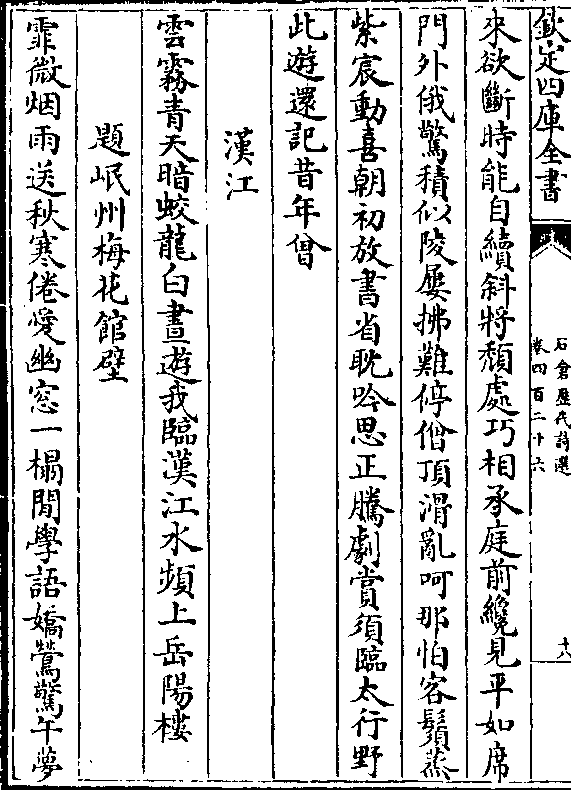 欽定四庫全書
石倉歷代詩選
卷四百二十六
十八
來欲斷時能自續斜將頽處巧相承庭前纔見平如席
門外俄驚積似陵屢拂難停僧頂滑亂呵那怕客鬚蒸
紫宸動喜朝初放書省耽吟思正騰劇賞須臨太行野
此遊還記昔年曾
漢江
雲霧青天暗蛟龍白晝遊我臨漢江水頻上岳陽樓
題岷州梅花館壁
霏微烟雨送秋寒倦愛幽窓一榻閒學語嬌鶯驚午夢